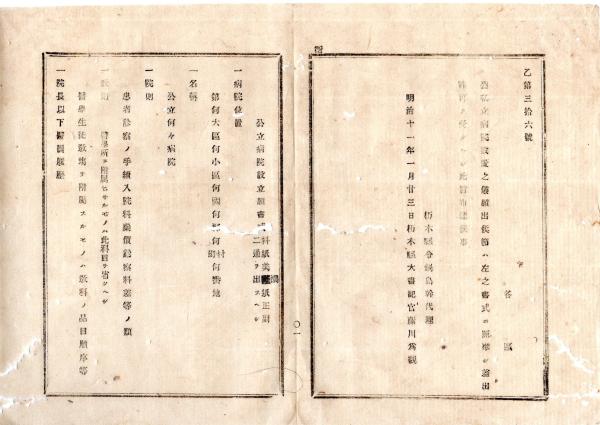 乙第三拾六號
各區
公私立病院設立之儀願出候節ハ左之書式ニ照準シ差出
許可ヲ受クヘシ此旨布達候事
栃木縣令鍋島幹代理
明治十一年一月廿三日栃木縣大書記官藤川爲親
公立病院設立願書式料紙美濃紙正副
二通ヲ出スヘシ
一病院位置
第何大區何小區何國何郡何村町何番地
一名稱
公立何々病院
一院則
患者診察ノ手續入院料藥價診察料差等ノ類
一教則
醫學所ヲ附屬セサルモノハ此科目ヲ省クヘシ
醫學生徒教場ヲ附屬スルモノハ教科ノ品目順序等
一院長以下醫員履歷
〇一